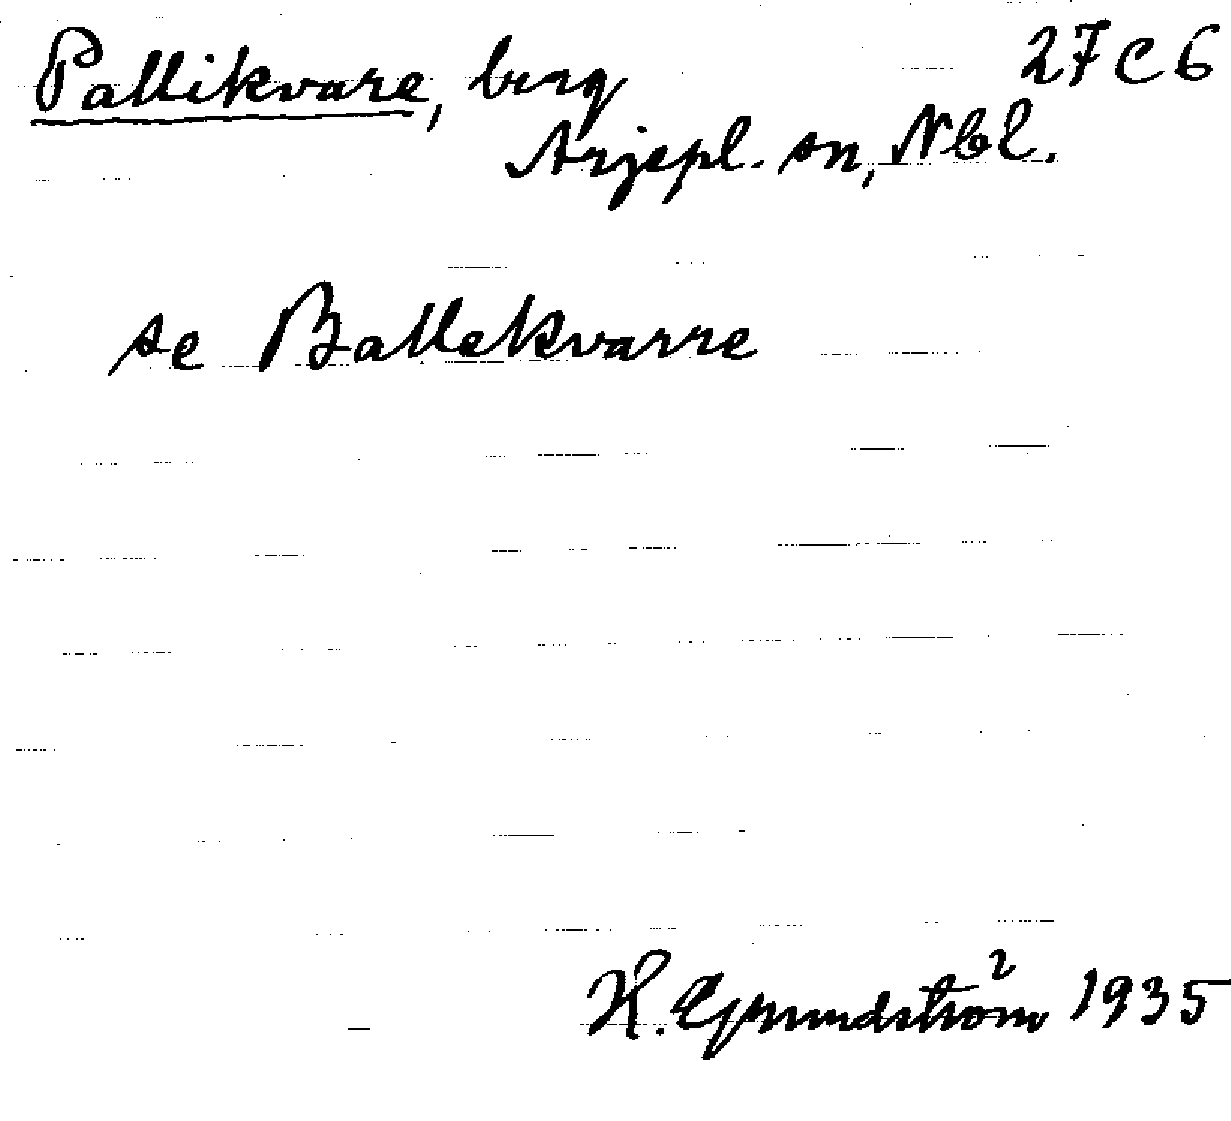 Pallikvare, berg 27 C 6
Arjepl. sn, Nbl.
se Ballekvarre
H. Grundström 1935